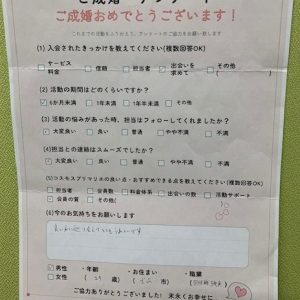 ご成婚おめでとうございます!
これまでの活動をふりかえり、アンケートのご協力をお願い致します
(1) 入会されたきっかけを教えてください(複数回答OK)
サービス 信頼 担当者 出会いを その他(
料金 求めて )
(2) 活動の期間はどのくらいですか?
6か月未満 1年未満 1年半未満 その他( )
(3) 活動の悩みがあった時、担当はフォローしてくれましたか?
大変良い 良い 普通 やや不満 不満
(4)担当との連絡はスムーズでしたか?
大変良い 良い 普通 やや不満 不満
(5)コスモスプリマリエの良い点・おすすめできる点を教えてください(複数回答OK)
担当者 会員数 料金体系 出会いの数 活動サポート
会員の質 その他( )
(6)今のお気持ちをお願いします
男性 ・年齢 ・お住まい ・職業
女性 ( 歳) ( ) ( )
ご協力ありがとうございました! 末永くお幸せに